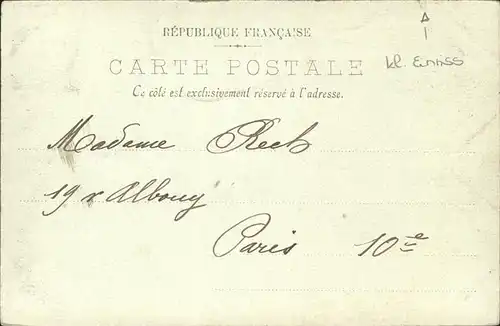 RÉPUBLIQUE FRANÇAISE
CARTE POSTALE
Ce côté est exclusivement réservé à l'adresse.
kl. Einriss
Madame Rech
19 r Albouy
Paris 10e